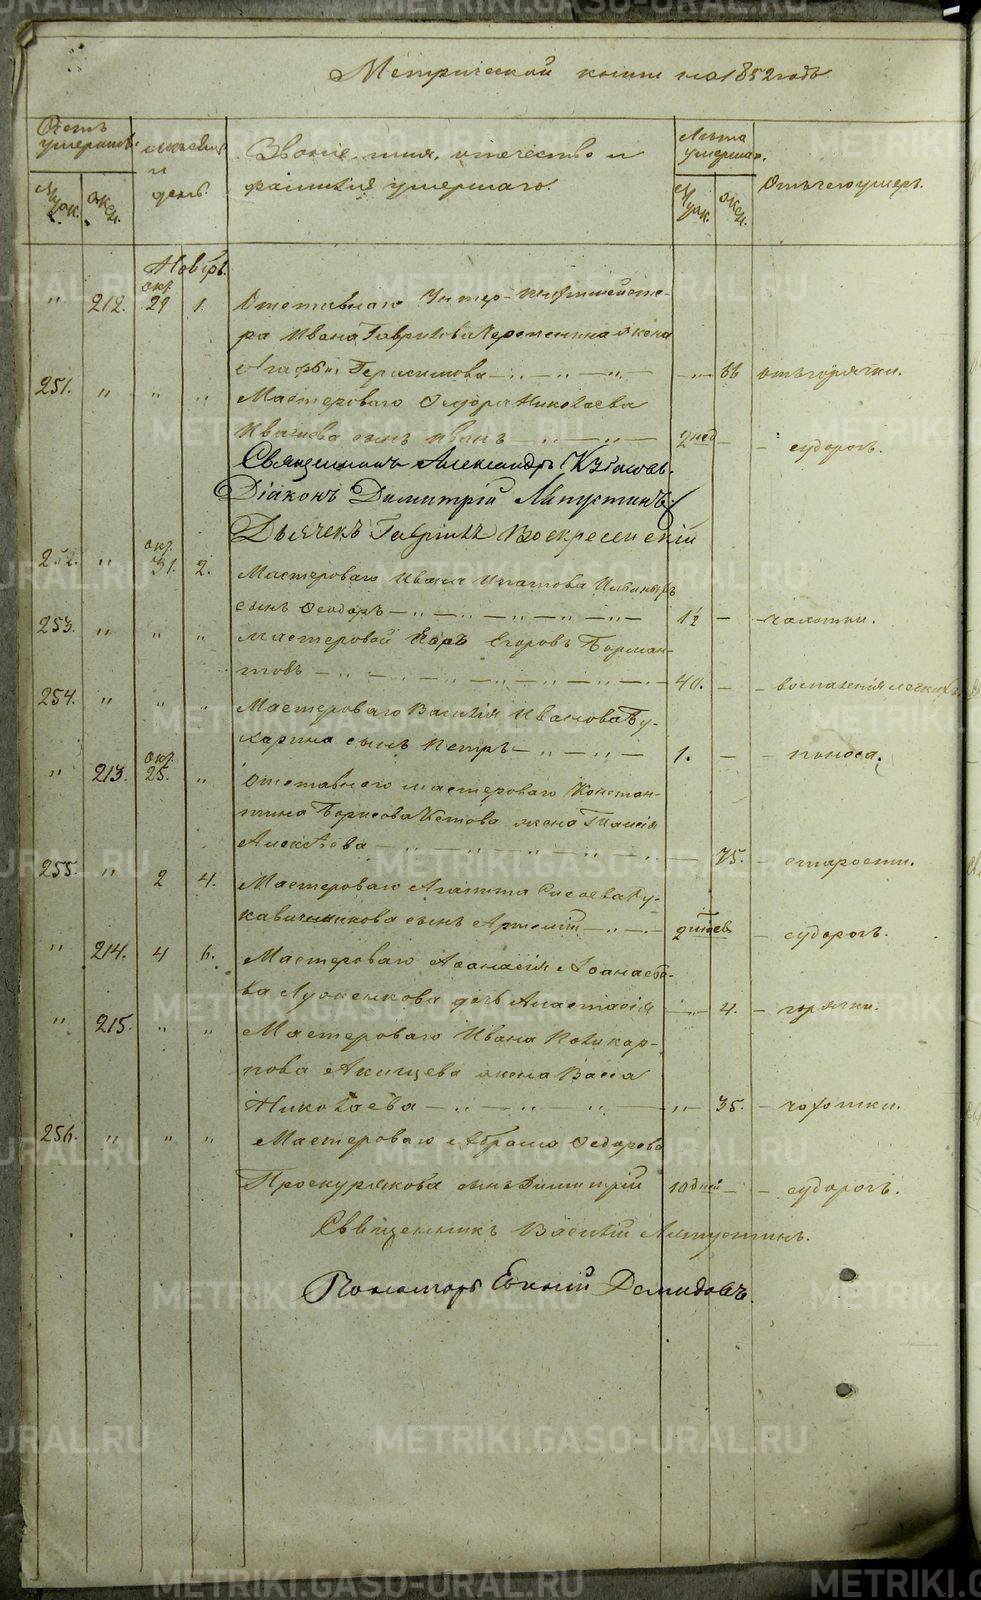 Метрической книги на 1852 годъ
Счетъ умершихъ. Мѣсяцъ и день. Званіе, имя, отечество и фамилія умершаго. Лѣта умершаго. Отъ чего умеръ.
Муж. Жен. Муж. Жен.
Ноябрь.
" 212. окт. 29 1. Отставнаго Унтер-Шихтмейсте-
ра Ивана Гаврилова жена
Агафья Герасимова — " — " — 66 отъ горячки.
251. " " " Мастероваго Ѳедора Николаева
сынъ Иванъ — " — " — 2 нед — - судорогъ.
Священникъ Александръ
Діаконъ Димитрій Лапустинъ
Дьячекъ Гавріилъ Воскресенскій
252. " окт. 31. 2. Мастероваго Ивана Игнатова
сынъ Ѳеодоръ — " — " — " — " — 1½ — - чахотки.
253. " " " Мастеровой Егоръ Егоровъ Борман-
товъ — " — " — " — " — 40. — - воспаленія легкихъ.
254. " " " Мастероваго Василія Иванова Бу-
харина сынъ Петръ — " — " — 1. — - поноса.
" 213. окт. 25. " Отставнаго мастероваго Констан-
тина Борисова Кетова жена Таисія
Алексѣева — " — " — " — 75. - старости.
255. " 2 4. Мастероваго Агапита Сысоева Ру-
кавичникова сынъ Артемій — " — 2 мѣсяц. - судорогъ.
" 214. 4 6. Мастероваго Аѳанасія Аѳанасье-
ва дочь Анастасія — " — 4. - горячки.
" 215. " " Мастероваго Ивана Поликар-
пова Акищева жена Васса
Николаева — " — " — " — " 35. - чахотки.
256. " " " Мастероваго Абрама Ѳедорова
Проскурякова сынъ Димитрій 10 дней — - судорогъ.
Священникъ Василій Лапустинъ.
Пономарь Евгній Демидовъ.
METRIKI.GASO-URAL.RU